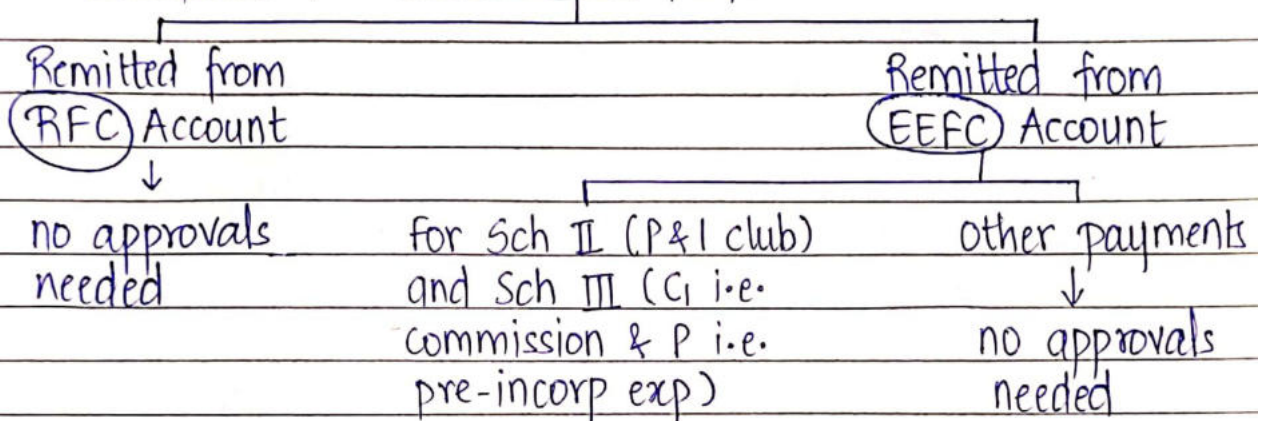 Remitted from
RFC Account
↓
no approvals
needed
Remitted from
EEFC Account
for Sch II (P&I club)
and Sch III (C₁ i.e.
commission & P i.e.
pre-incorp exp)
other payments
↓
no approvals
needed